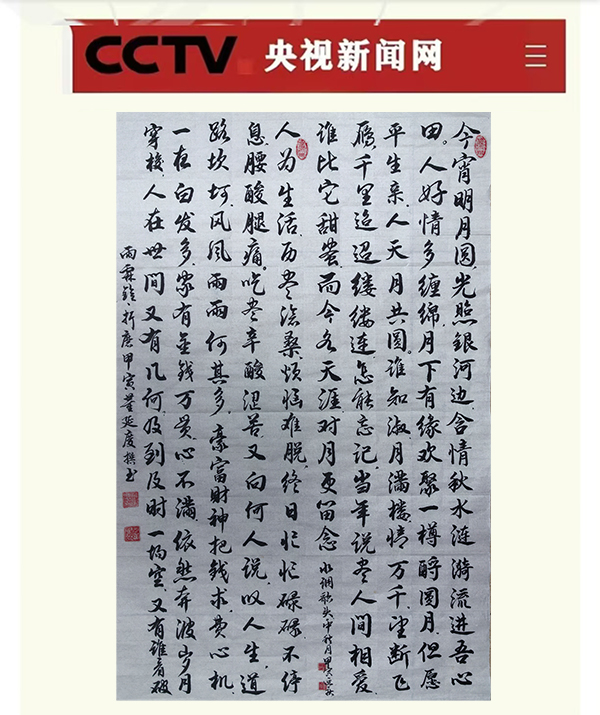 CCTV 央视新闻网
今宵明月圆光照银河边含情秋水涟漪流进吾心
田。人好情多缠绵月下有缘欢聚一樽酹圆月但愿
平生亲人天月共圆。谁知淑月满楼情万千望断飞
雁千里迢迢缕缕连怎能忘记当年说尽人间相爱
谁比它甜蜜而今各天涯对月更留念
水调歌头中秋月甲寅
人为生活历尽沧桑烦恼难脱终日忙忙碌碌不停
息腰酸腿痛。吃尽辛酸涩苦又向何人说叹人生道
路坎坷风风雨雨何其多豪富财神把钱求费心机
一夜白发多家有金钱万贯心不满依然奔波岁月
穿梭人在世间又有几何及到及时一场空又有谁看破
雨霖铃·析愿甲寅董延庆撰书